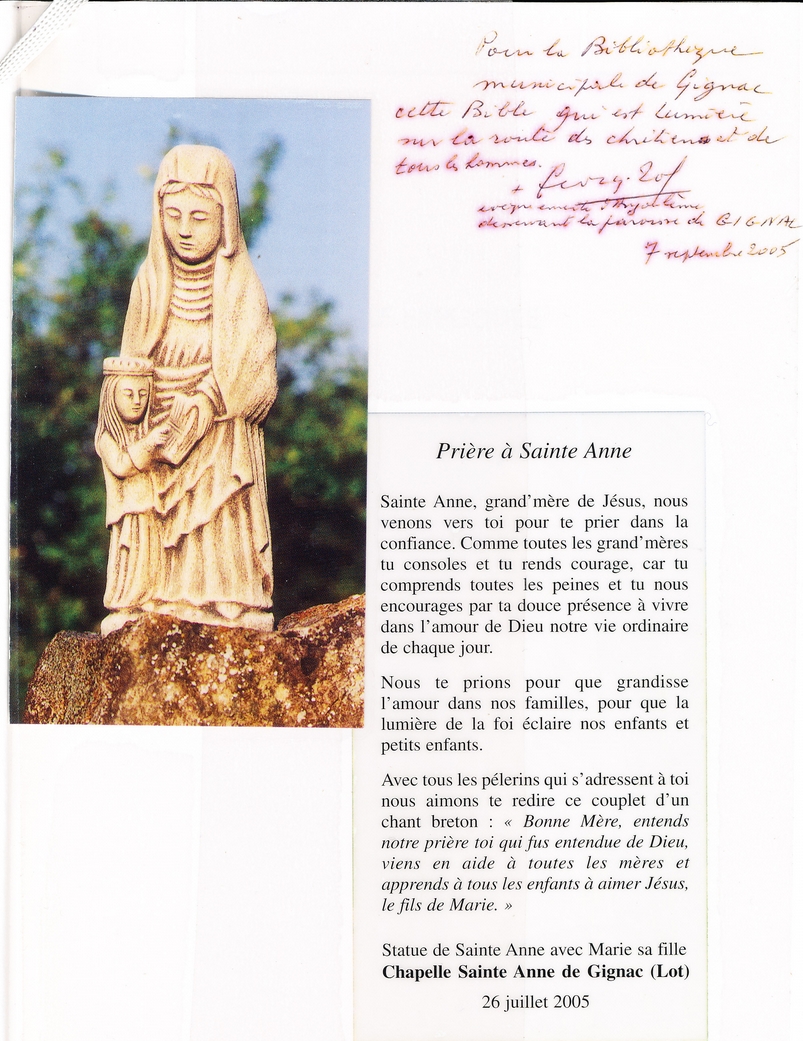 Pour la Bibliothèque
municipale de Gignac
cette Bible qui est Lumière
sur la route des chrétiens et de
tous les hommes.
+
evêque
desservant la paroisse de GIGNAC
7 septembre 2005
Prière à Sainte Anne
Sainte Anne, grand’mère de Jésus, nous
venons vers toi pour te prier dans la
confiance. Comme toutes les grand’mères
tu consoles et tu rends courage, car tu
comprends toutes les peines et tu nous
encourages par ta douce présence à vivre
dans l’amour de Dieu notre vie ordinaire
de chaque jour.
Nous te prions pour que grandisse
l’amour dans nos familles, pour que la
lumière de la foi éclaire nos enfants et
petits enfants.
Avec tous les pélerins qui s’adressent à toi
nous aimons te redire ce couplet d’un
chant breton : « Bonne Mère, entends
notre prière toi qui fus entendue de Dieu,
viens en aide à toutes les mères et
apprends à tous les enfants à aimer Jésus,
le fils de Marie. »
Statue de Sainte Anne avec Marie sa fille
Chapelle Sainte Anne de Gignac (Lot)
26 juillet 2005